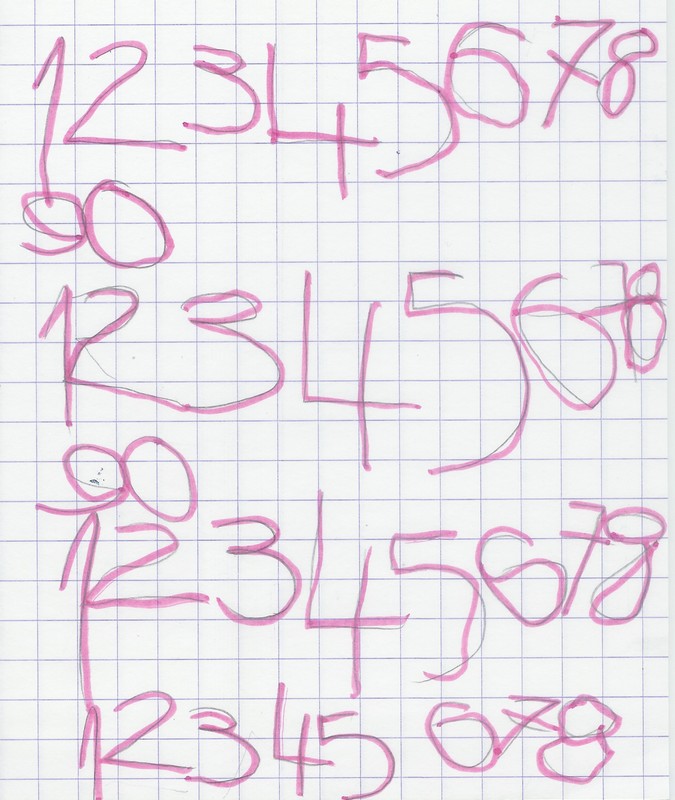 12345678
90
12345678
90
12345678
12345678